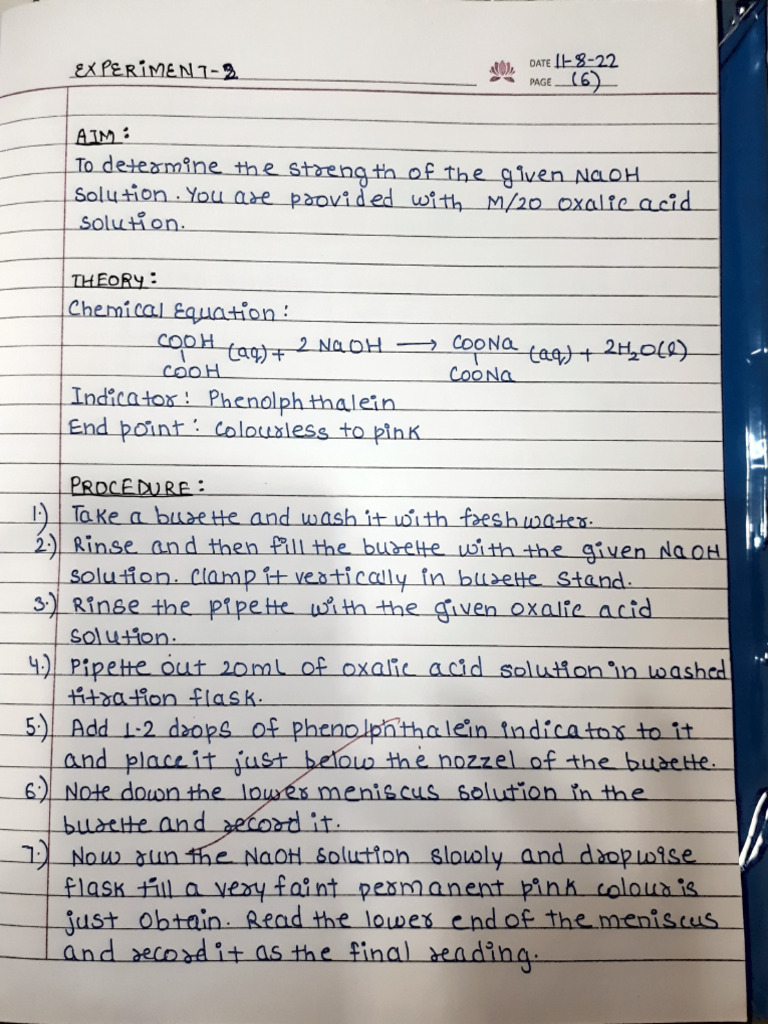 EXPERIMENT-3
DATE 11-8-22
PAGE (6)
AIM:
To determine the strength of the given NaOH
solution. You are provided with M/20 oxalic acid
solution.
THEORY:
Chemical Equation:
COOH (aq) + 2 NaOH → COONa (aq) + 2H₂O(l)
COOH COONa
Indicator: Phenolphthalein
End point: Colourless to pink
PROCEDURE:
1.) Take a burette and wash it with fresh water.
2.) Rinse and then fill the burette with the given NaOH
solution. Clamp it vertically in burette stand.
3.) Rinse the pipette with the given oxalic acid
solution.
4.) Pipette out 20mL of oxalic acid solution in washed
titration flask.
5.) Add 1-2 drops of phenolphthalein indicator to it
and place it just below the nozzel of the burette.
6.) Note down the lower meniscus solution in the
burette and record it.
7.) Now run the NaOH solution slowly and dropwise
flask till a very faint permanent pink colour is
just obtain. Read the lower end of the meniscus
and record it as the final reading.